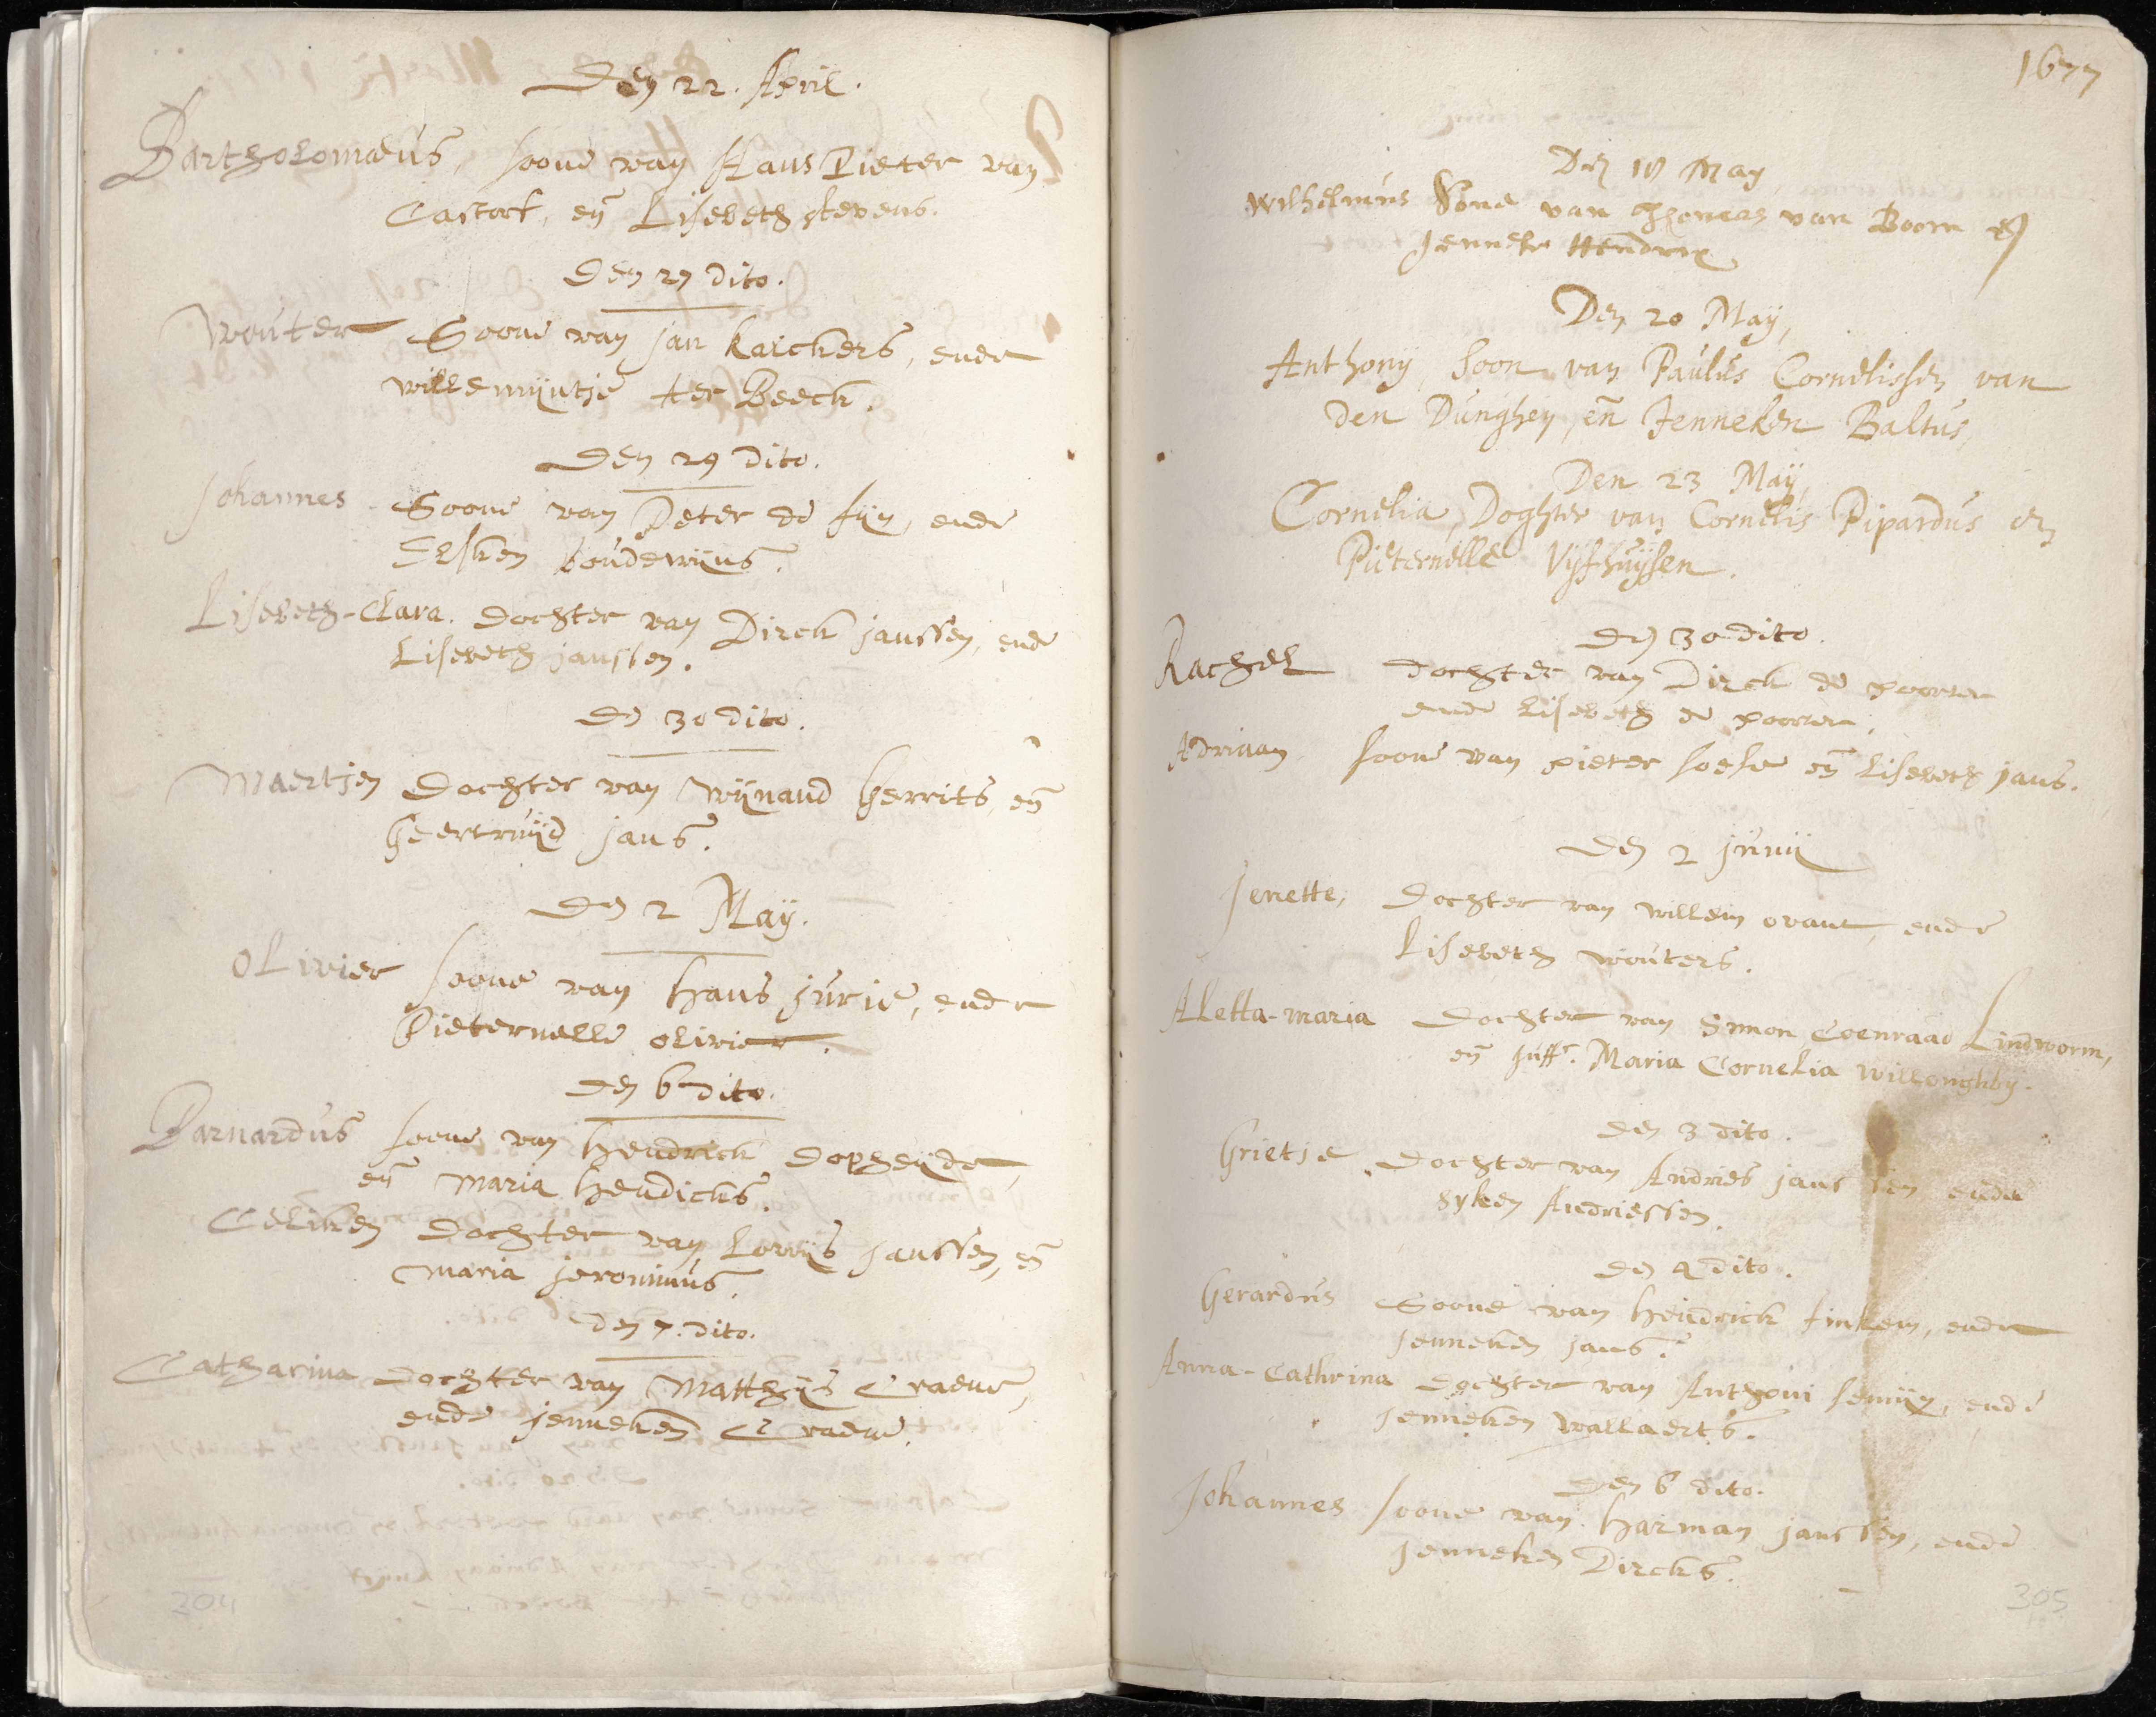 Den 22. April.
Bartholomæus, soone van Hans Pieter van
Castort, en̄ Lisebeth stevens.
Den 27 dito.
Wouter Soone van jan karckers, ende
willemijntje ter Beeck.
Den 29 dito.
Johannes Soone van Peter de fijn, ende
Elsken boudewijns.
Lisebeth-Clara. Dochter van Dirck janssen, ende
Lisebeth janssen.
Den 30 dito.
Maertjen Dochter van Wijnand Gerrits, en̄
Geertruijd jans.
Den 2 Maÿ.
Olivier soone van Hans jurie, ende
Pieternelle olivier.
Den 6 dito.
Barnardus soone van Hendrick Dopheijde,
en̄ Maria Hendicks.
Celiken Dochter van Lowijs Janssen, en̄
Maria jeronimus.
Den 7. dito.
Catharina Dochter van Matthijs Craeue,
ende jenneken Craeue.
304
1677
Den 18 May
Wilhelmus Sone van Thomas van Boorn en
Jenneke Hendrix
Den 20 Maÿ,
Anthonÿ soon van Paulus Cornelissen van
den Dunghen, en̄ Jenneken Baltus,
Den 23 Maÿ,
Cornelia, Doghter van Cornelis Pipardus en
Pieternelle Vijfhuijsen.
Den 30 dito.
Rachel dochter van Dirck de poorter
ende Lisebeth de poorter.
Adriaan soone van pieter soese en̄ Lisebeth jans.
Den 2 junij
Jenette, Dochter van willem ovant, ende
Lisebeth wouters.
Aletta-maria Dochter van Simon Coenraad Lindworm,
en̄ Juffr. Maria Cornelia Willoughby.
Den 3 dito.
Grietje Dochter van Andries janssen ende
Syken Andriessen.
Den 4 dito.
Gerardus Soone van Hendrick finkem, ende
Jenneken jans.
Anna-Cathrina Dochter van Anthoni semijn, ende
Jenneken Wallaerts.
Den 6 dito.
Johannes soone van Harman janssen, ende
Jenneken Dircks.
305